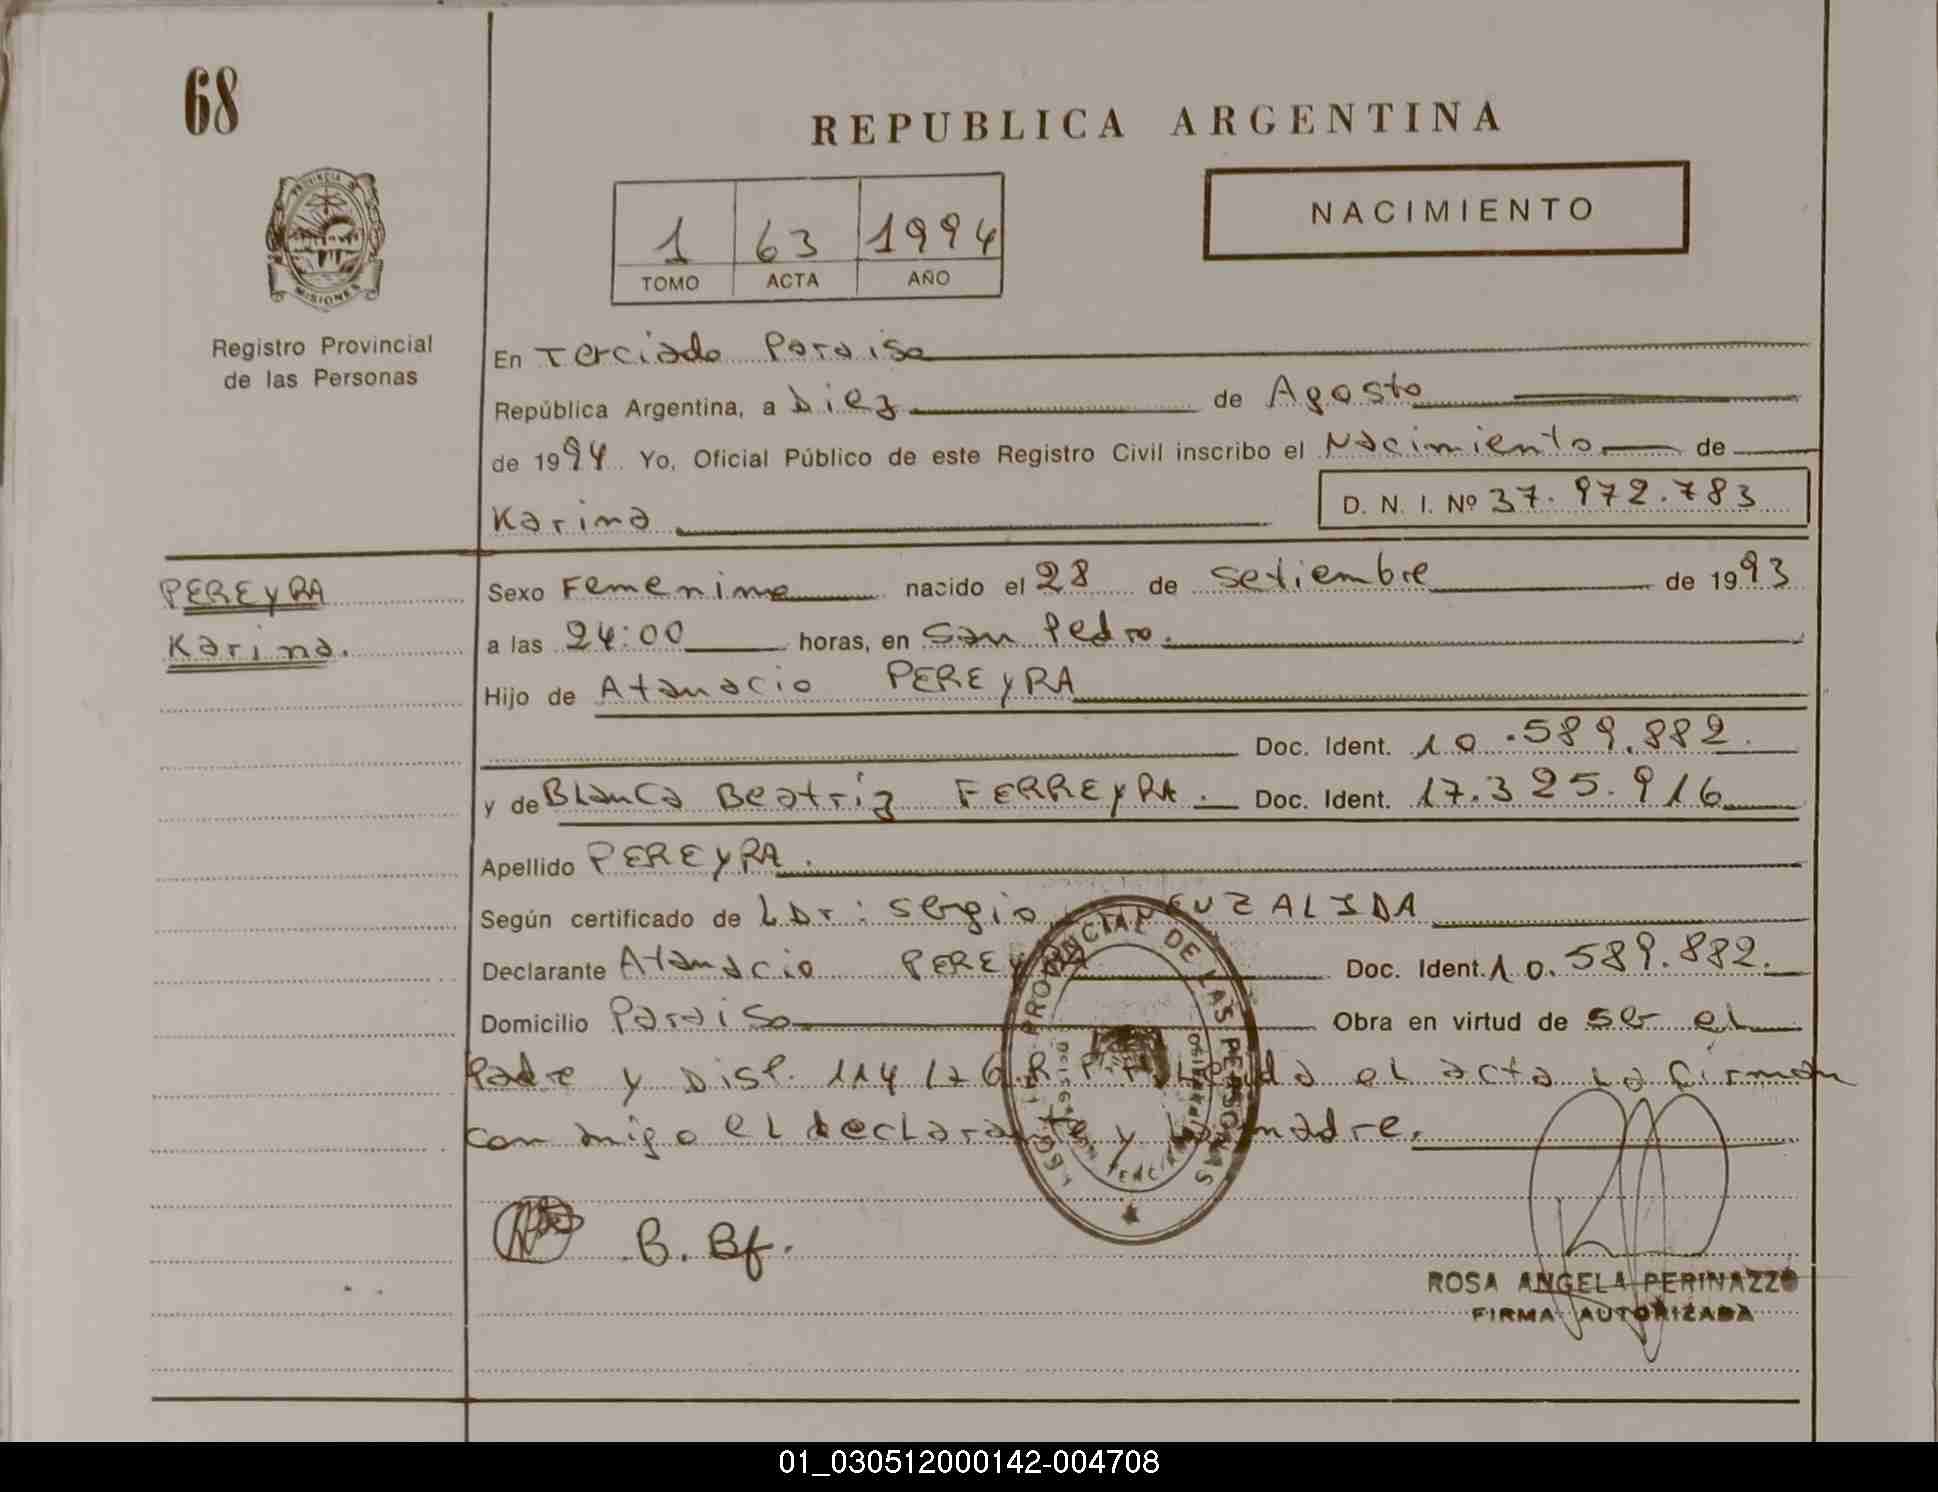 68
REPUBLICA ARGENTINA
PROVINCIA DE
MISIONES
Registro Provincial
de las Personas
1 63 1994
TOMO ACTA AÑO
NACIMIENTO
En Terciado Paraiso
República Argentina, a Diez de Agosto
de 1994 Yo, Oficial Público de este Registro Civil inscribo el Nacimiento de
Karina D. N. I. Nº 37.972.783
PEREYRA
Karina.
Sexo Femenino nacido el 28 de Setiembre de 1993
a las 24:00 horas, en San Pedro.
Hijo de Atanacio PEREYRA
Doc. Ident. 10.589.882.
y de Blanca Beatriz FERREYRA. Doc. Ident. 17.325.916
Apellido PEREYRA.
Según certificado de Sergio
Declarante Atanacio PEREYRA Doc. Ident. 10.589.882.
Domicilio Paraiso Obra en virtud de ser el
Padre y Disp. 114/76 el acta la firman
con migo el declarante y la madre.
PROVINCIAL DE LAS PERSONAS
B. Bf.
ROSA ANGELA PERINAZZO
FIRMA AUTORIZADA
01_030512000142-004708